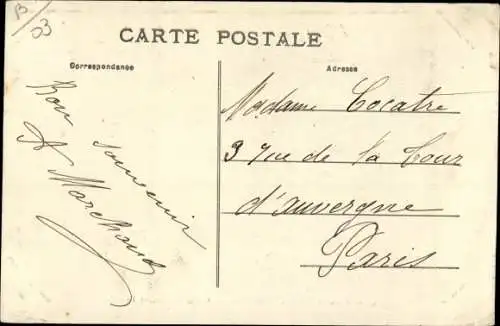 B
03
CARTE POSTALE
Correspondance
Adresse
Bon
souvenir
A Marchand
Madame Cocatre
3 rue de la Tour
d'auvergne
Paris